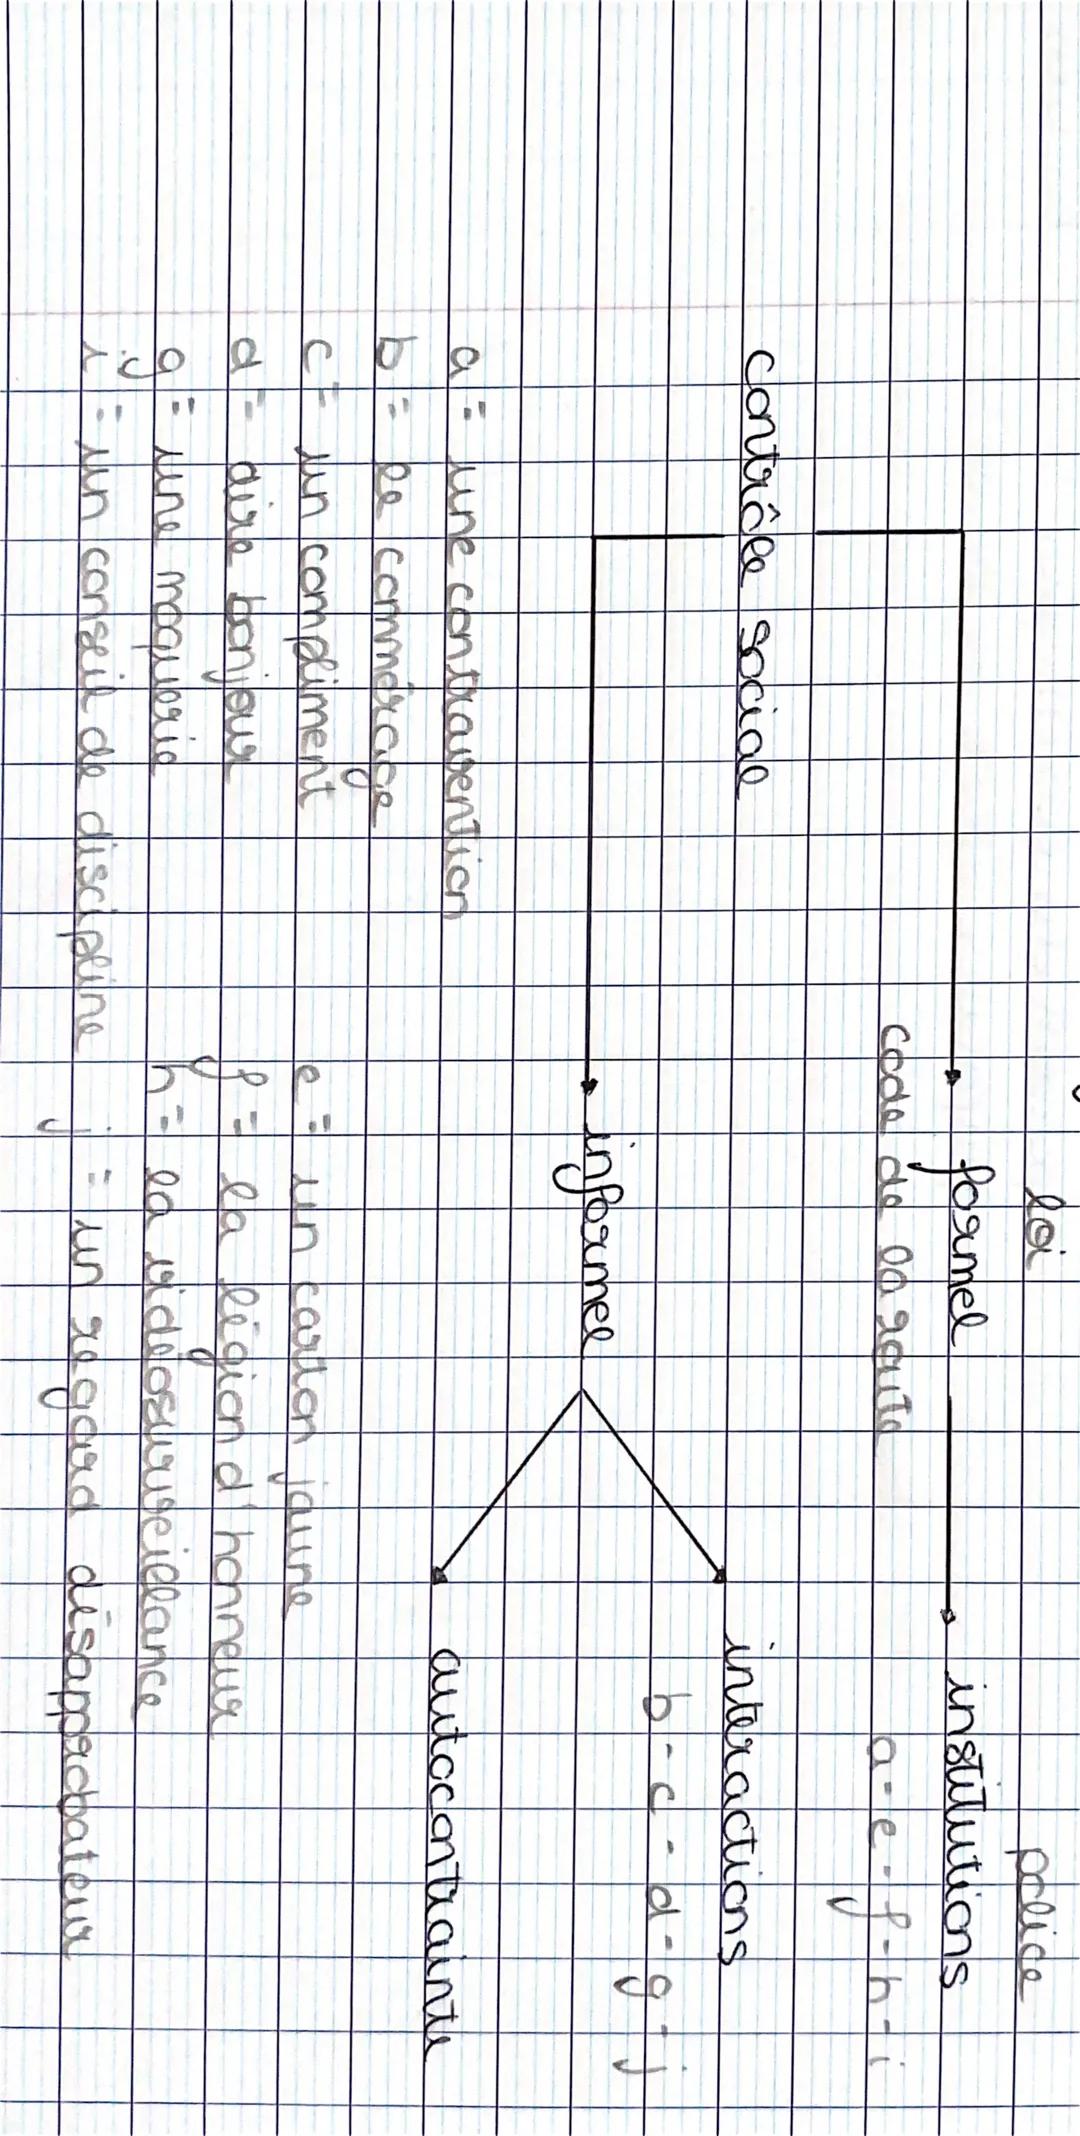 loi police
formel institutions
code de la route a - e - f - h - i
contrôle social interactions
b - c - d - g - j
informel
autocontrainte
a = une contravention
b = le commérage
c = un compliment e = un carton jaune
d = dire bonjour f = la légion d'honneur
g = une moquerie h = la vidéosurveillance
i = un conseil de discipline j = un regard désapprobateur